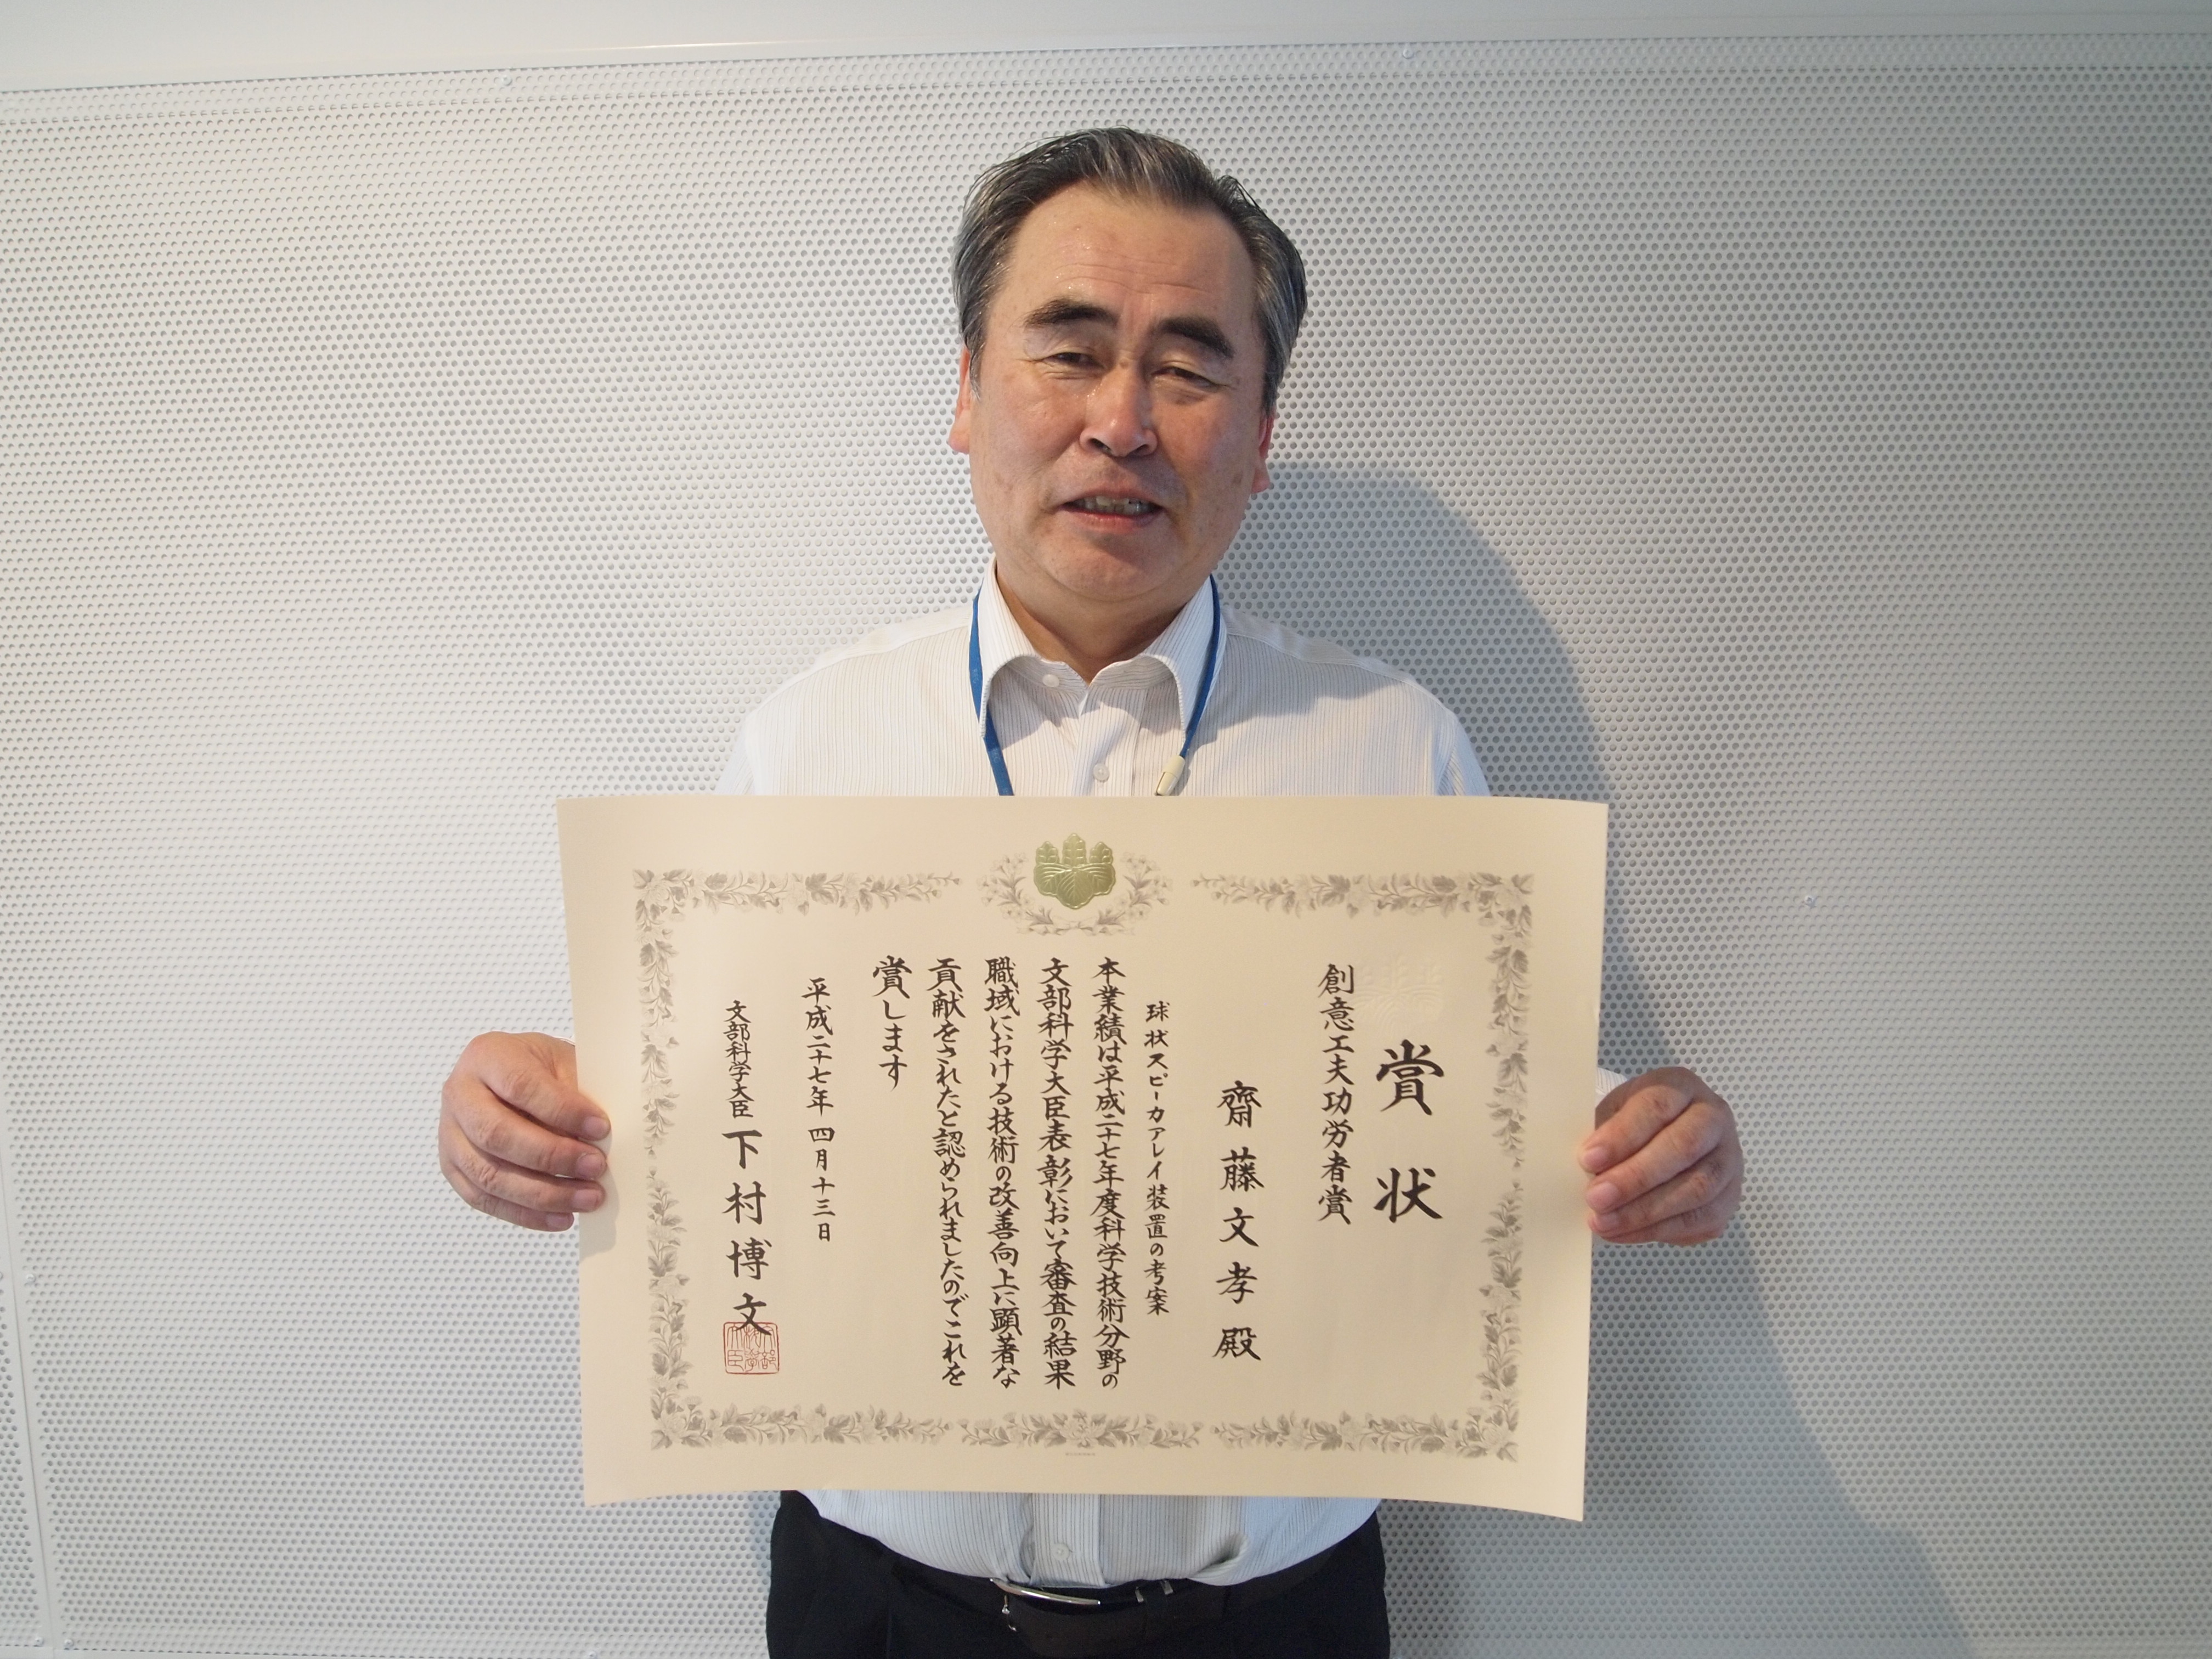 賞状
創意工夫功労者賞
齋藤文孝殿
球状スピーカアレイ装置の考案
本業績は平成二十七年度科学技術分野の
文部科学大臣表彰において審査の結果
職域における技術の改善向上に顕著な
貢献をされたと認められましたのでこれを
賞します
平成二十七年四月十三日
文部科学大臣下村博文